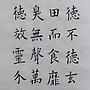 德不德玄
田而食靡
臭無聲萬
德效靈分